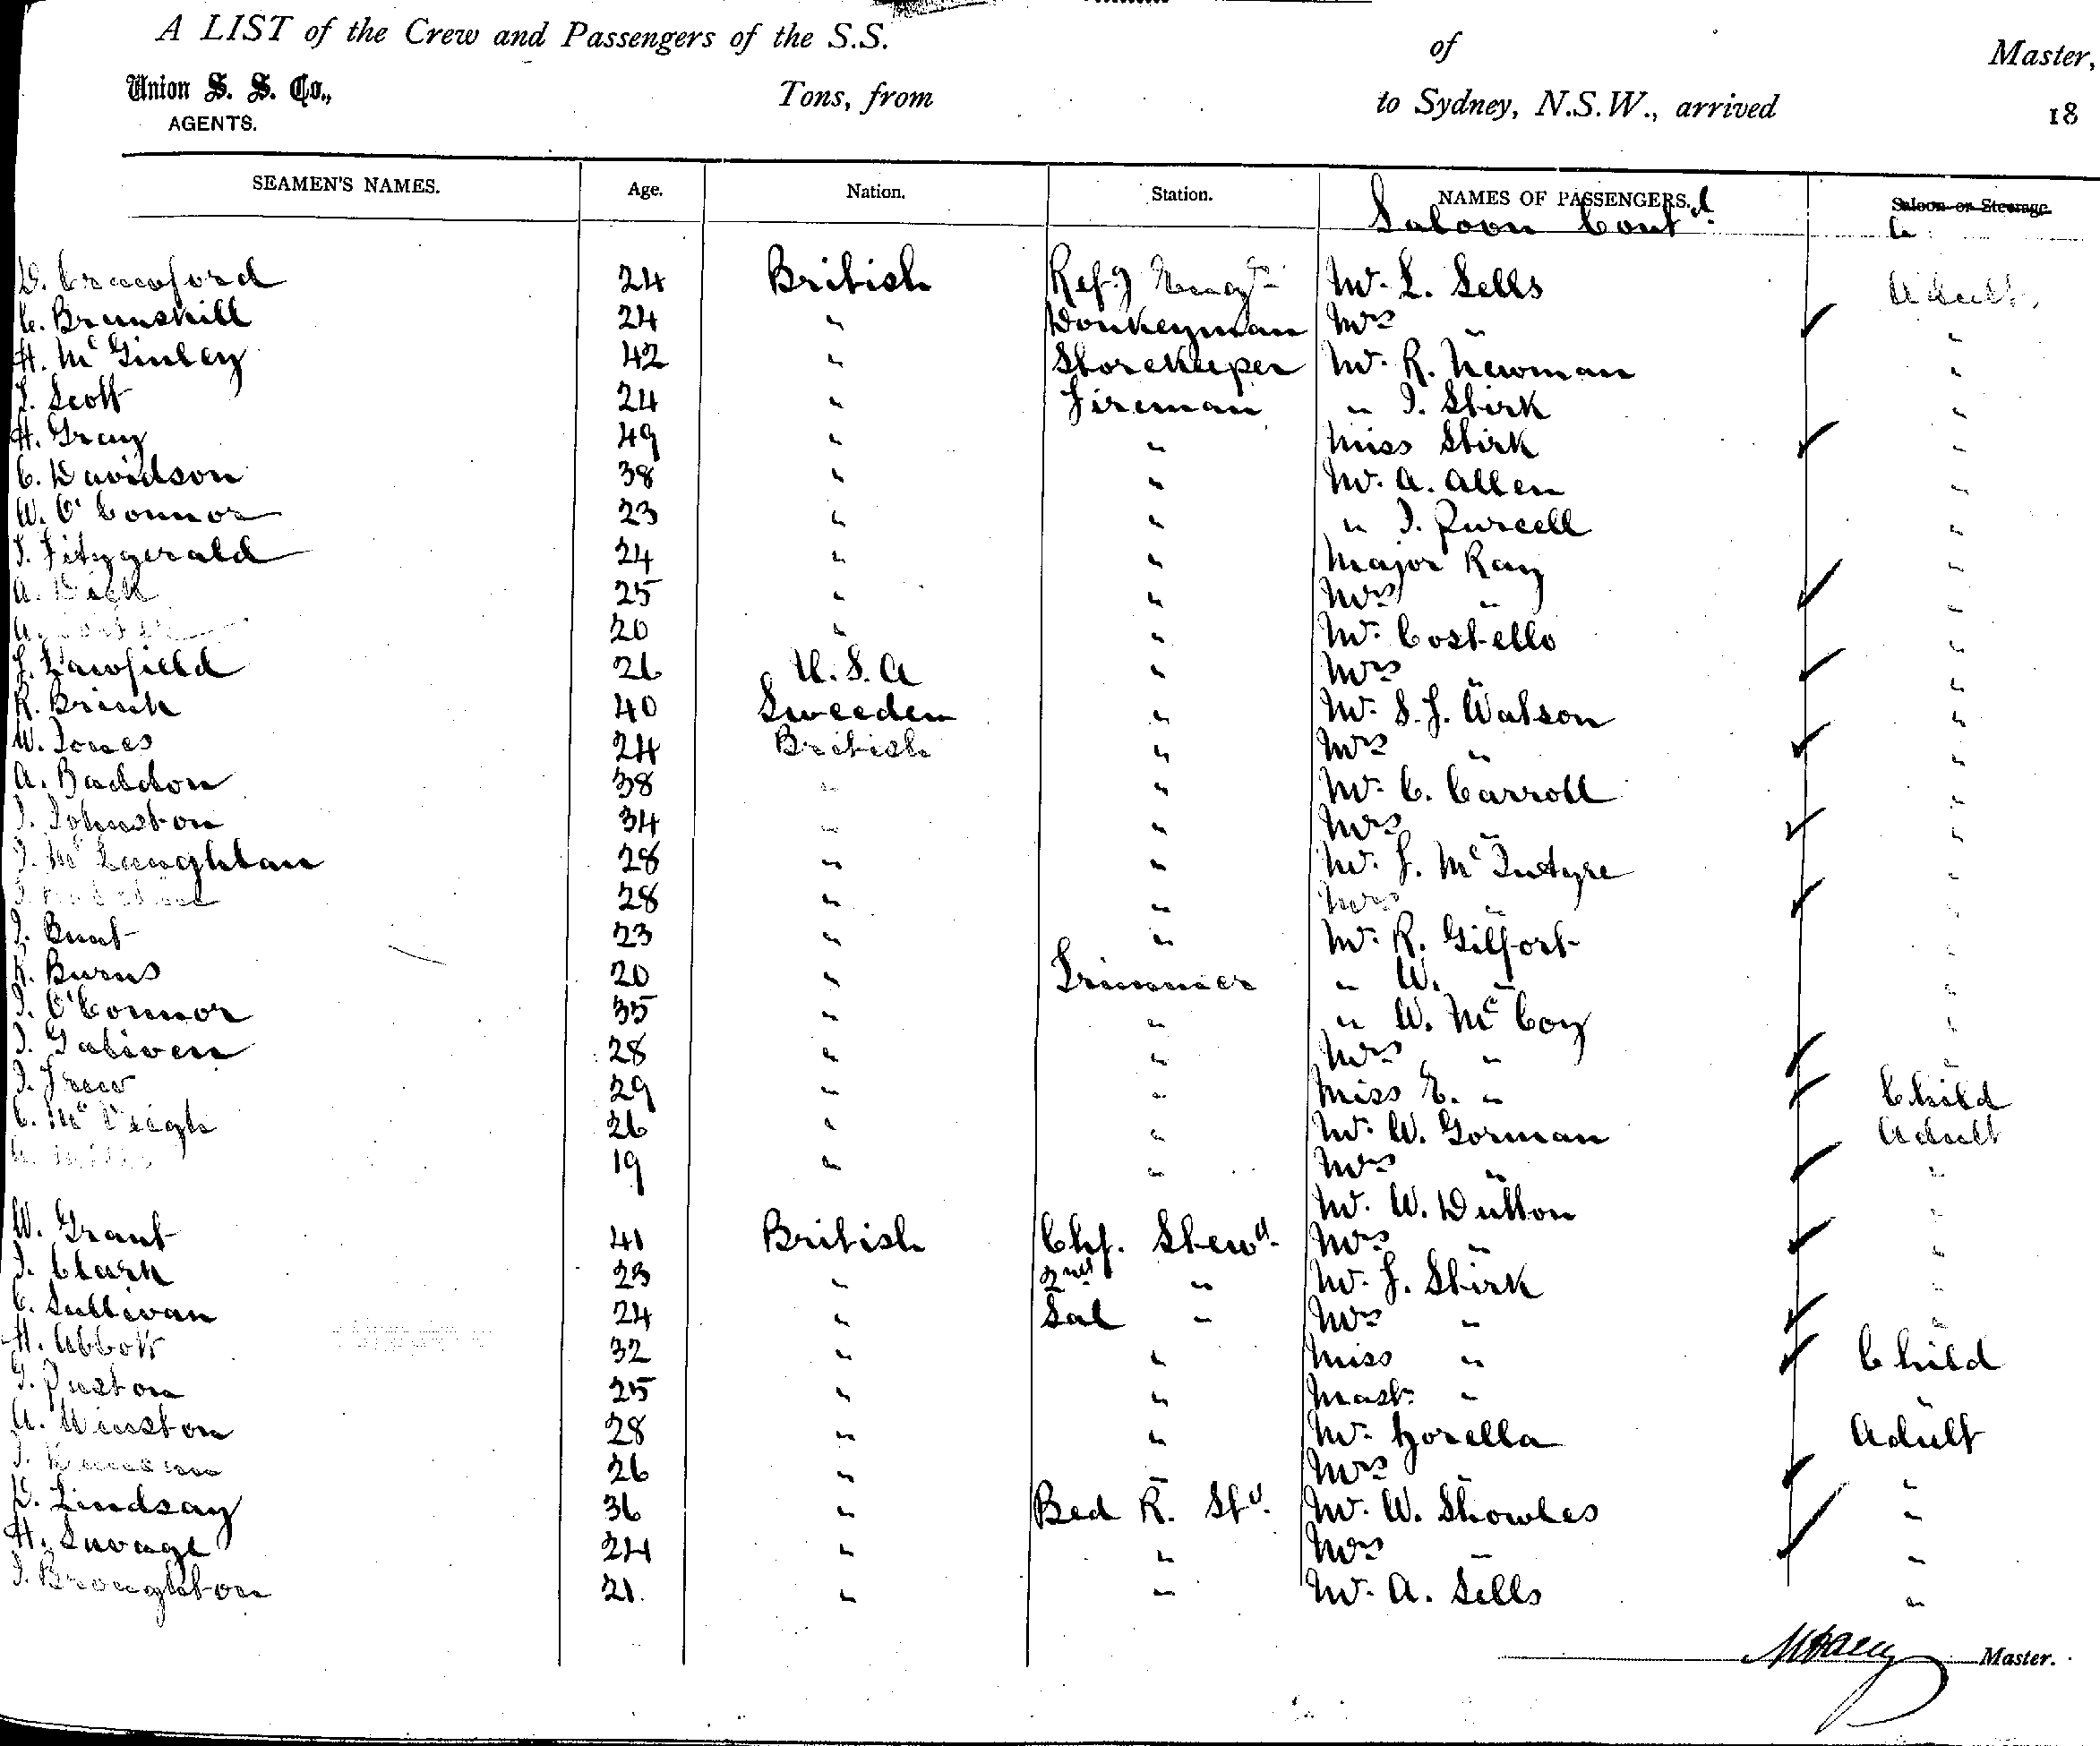 A LIST of the Crew and Passengers of the S.S. of Master,
Union S. S. Co., Tons, from to Sydney, N.S.W., arrived 18
AGENTS.
SEAMEN'S NAMES. Age. Nation. Station. NAMES OF PASSENGERS. Saloon or Steerage
Saloon Contd.
D. Crawford 24 British Refg Engr Mr. L. Sells Adult
C. Brunskill 24 " Donkeyman Mrs "  "
H. McGinley 42 " Storekeeper Mr. R. Newman "
J. Scott 24 " Fireman " J. Stirk "
H. Gray 49 " " Miss Stirk "
C. Davidson 38 " " Mr. A. Allen "
W. O'Connor 23 " " " J. Purcell "
J. Fitzgerald 24 " " Major Ray "
A. Dick 25 " " Mrs " "
A. 20 " " Mr. Costello "
Lawfield 26 U.S.A " Mrs " "
R. Brink 40 Sweeden " Mr. S. J. Watson "
W. Jones 24 British " Mrs " "
A. Baddon 38 " " Mr. C. Carroll "
J. Johnston 34 " " Mrs " "
J. McLaughlan 28 " " Mr. J. McIntyre "
28 " " Mrs " "
J. Bunt 23 " " Mr. R. Gilfort "
R. Burns 20 " Trimmer " W. " "
J. O'Connor 35 " " " W. McCoy "
J. Galiven 28 " " Mrs " "
J. Frew 29 " " Miss E. " Child
C. McVeigh 26 " " Mr. W. Gorman Adult
19 " " Mrs " "
Mr. W. Dutton "
W. Grant 41 British Chf. Stewd. Mrs " "
J. Clark 23 " 2nd " Mr. J. Stirk "
C. Sullivan 24 " Sal " Mrs " "
H. Abbott 32 " " Miss " Child
G. Puston 25 " " Mast. " "
A. Winston 28 " " Mr. Gorella Adult
26 " " Mrs " "
D. Lindsay 36 " Bed R. Std. Mr. W. Showles "
H. Savage 24 " " Mrs " "
J. Broughton 21. " " Mr. A. Sells "
Master.